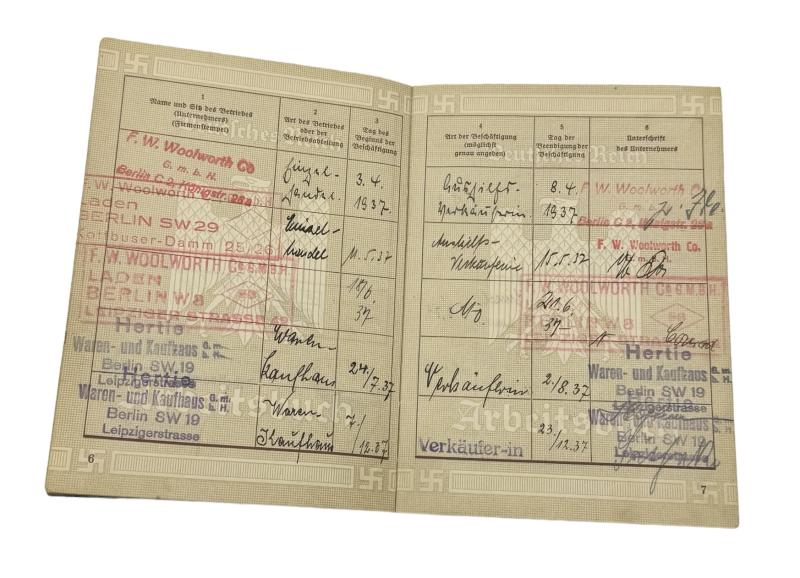 1
Name und Sitz des Betriebes
(Unternehmers)
(Firmenstempel)
2
Art des Betriebes
oder der
Betriebsabteilung
3
Tag des
Beginns der
Beschäftigung
F. W. Woolworth Co
G. m. b. H.
Berlin C 2, Königstr.
Einzel-
handel.
3. 4.
1937.
F. W. Woolworth
Laden
BERLIN SW 29
Kottbuser-Damm 25/26
Einzel-
handel
11. 5. 37
F. W. WOOLWORTH Co G.M.B.H
LADEN
BERLIN W 8
LEIPZIGER STRASSE
18/6.
37
Hertie
Waren- und Kaufhaus G. m. b. H.
Berlin SW 19
Leipzigerstrasse
Waren-
kaufhaus
24./
7. 37
Hertie
Waren- und Kaufhaus G. m. b. H.
Berlin SW 19
Leipzigerstrasse
Waren-
Kaufhaus
7./
12.37
Arbeitsbuch
6
4
Art der Beschäftigung
(möglichst
genau angeben)
5
Tag der
Beendigung der
Beschäftigung
6
Unterschrift
des Unternehmers
Deutsches Reich
Aushilfs-
verkäuferin
8. 4.
1937
F. W. Woolworth Co
G. m. b. H.
Berlin C 2, Königstr.
Aushilfs-
Verkäuferin
15. 5. 37
F. W. Woolworth Co.
20. 6.
37
F. W. WOOLWORTH Co G.M.B.H
BERLIN W 8
Verkäuferin
2./8. 37
Hertie
Waren- und Kaufhaus G. m. b. H.
Berlin SW 19
Leipzigerstrasse
Verkäufer-in
23./
12.37
Hertie
Waren- und Kaufhaus G. m. b. H.
Berlin SW 19
Leipzigerstrasse
Arbeitsbuch
7